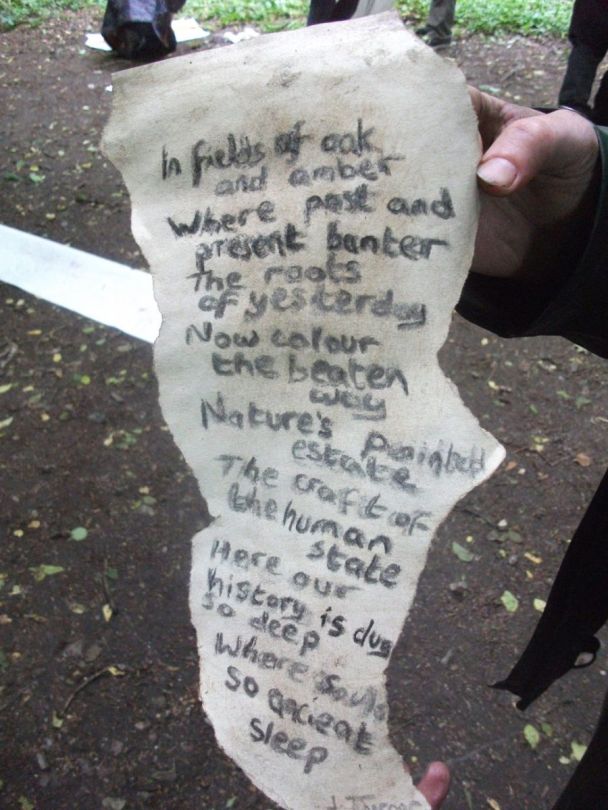 In fields of oak
and amber
Where past and
present banter
The roots
of yesterday
Now colour
the beaten
way
Nature's painted
estate
The craft of
the human
state
Here our
history is dug
so deep
Where souls
so ancient
sleep